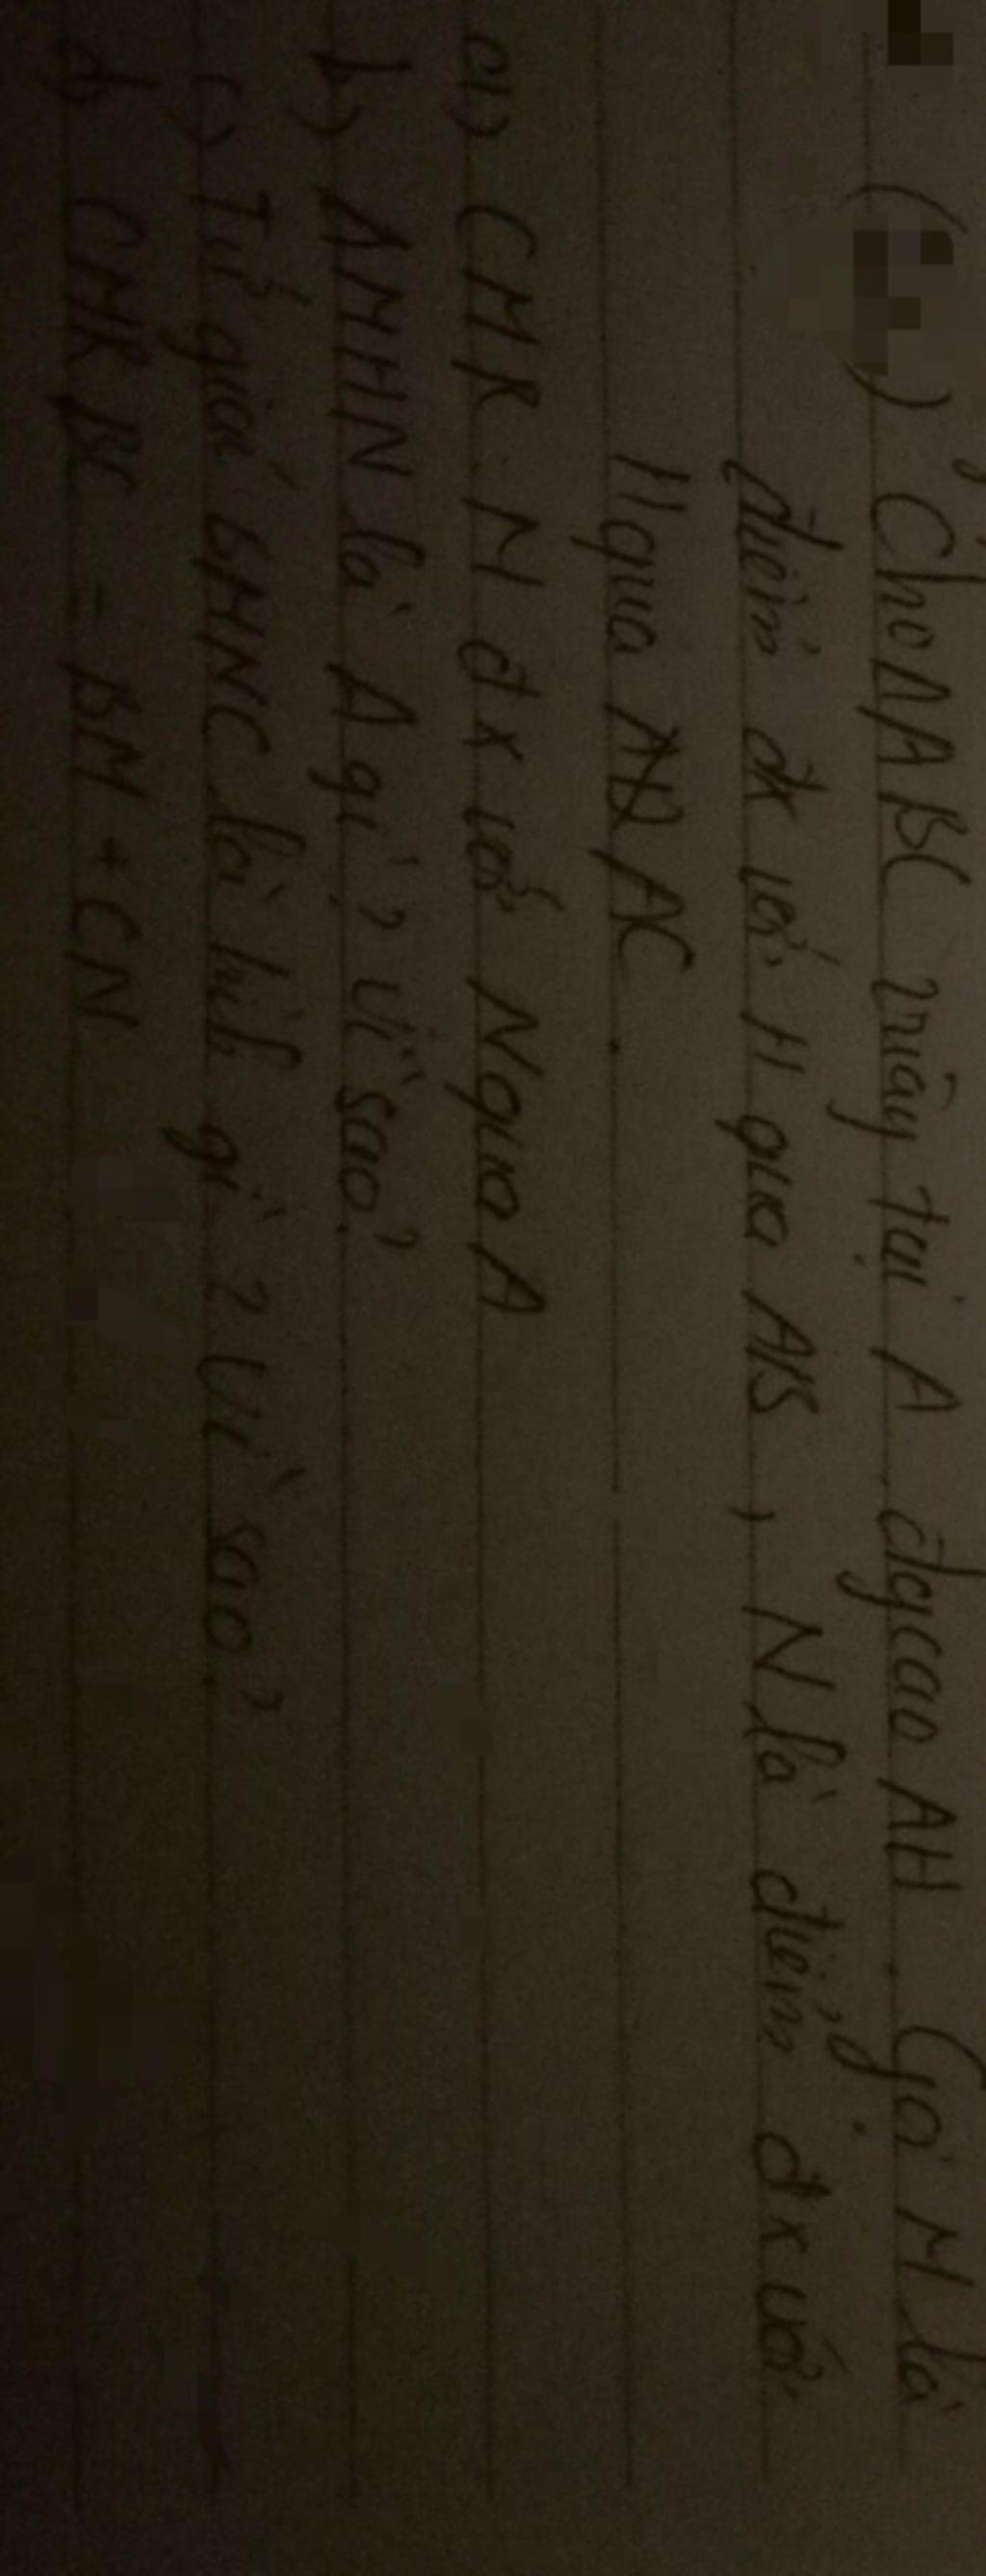 ( ) Cho Δ ABC vuông tại A đgcao AH. Gọi M là
điểm đx với H qua AB, N là điểm đx với
H qua AC.
a) CMR M đx với N qua A
b) Δ MHN là Δ gì? Vì sao?
c) Tứ giác BMNC là hình gì? Vì sao?
d) CMR BC = BM + CN